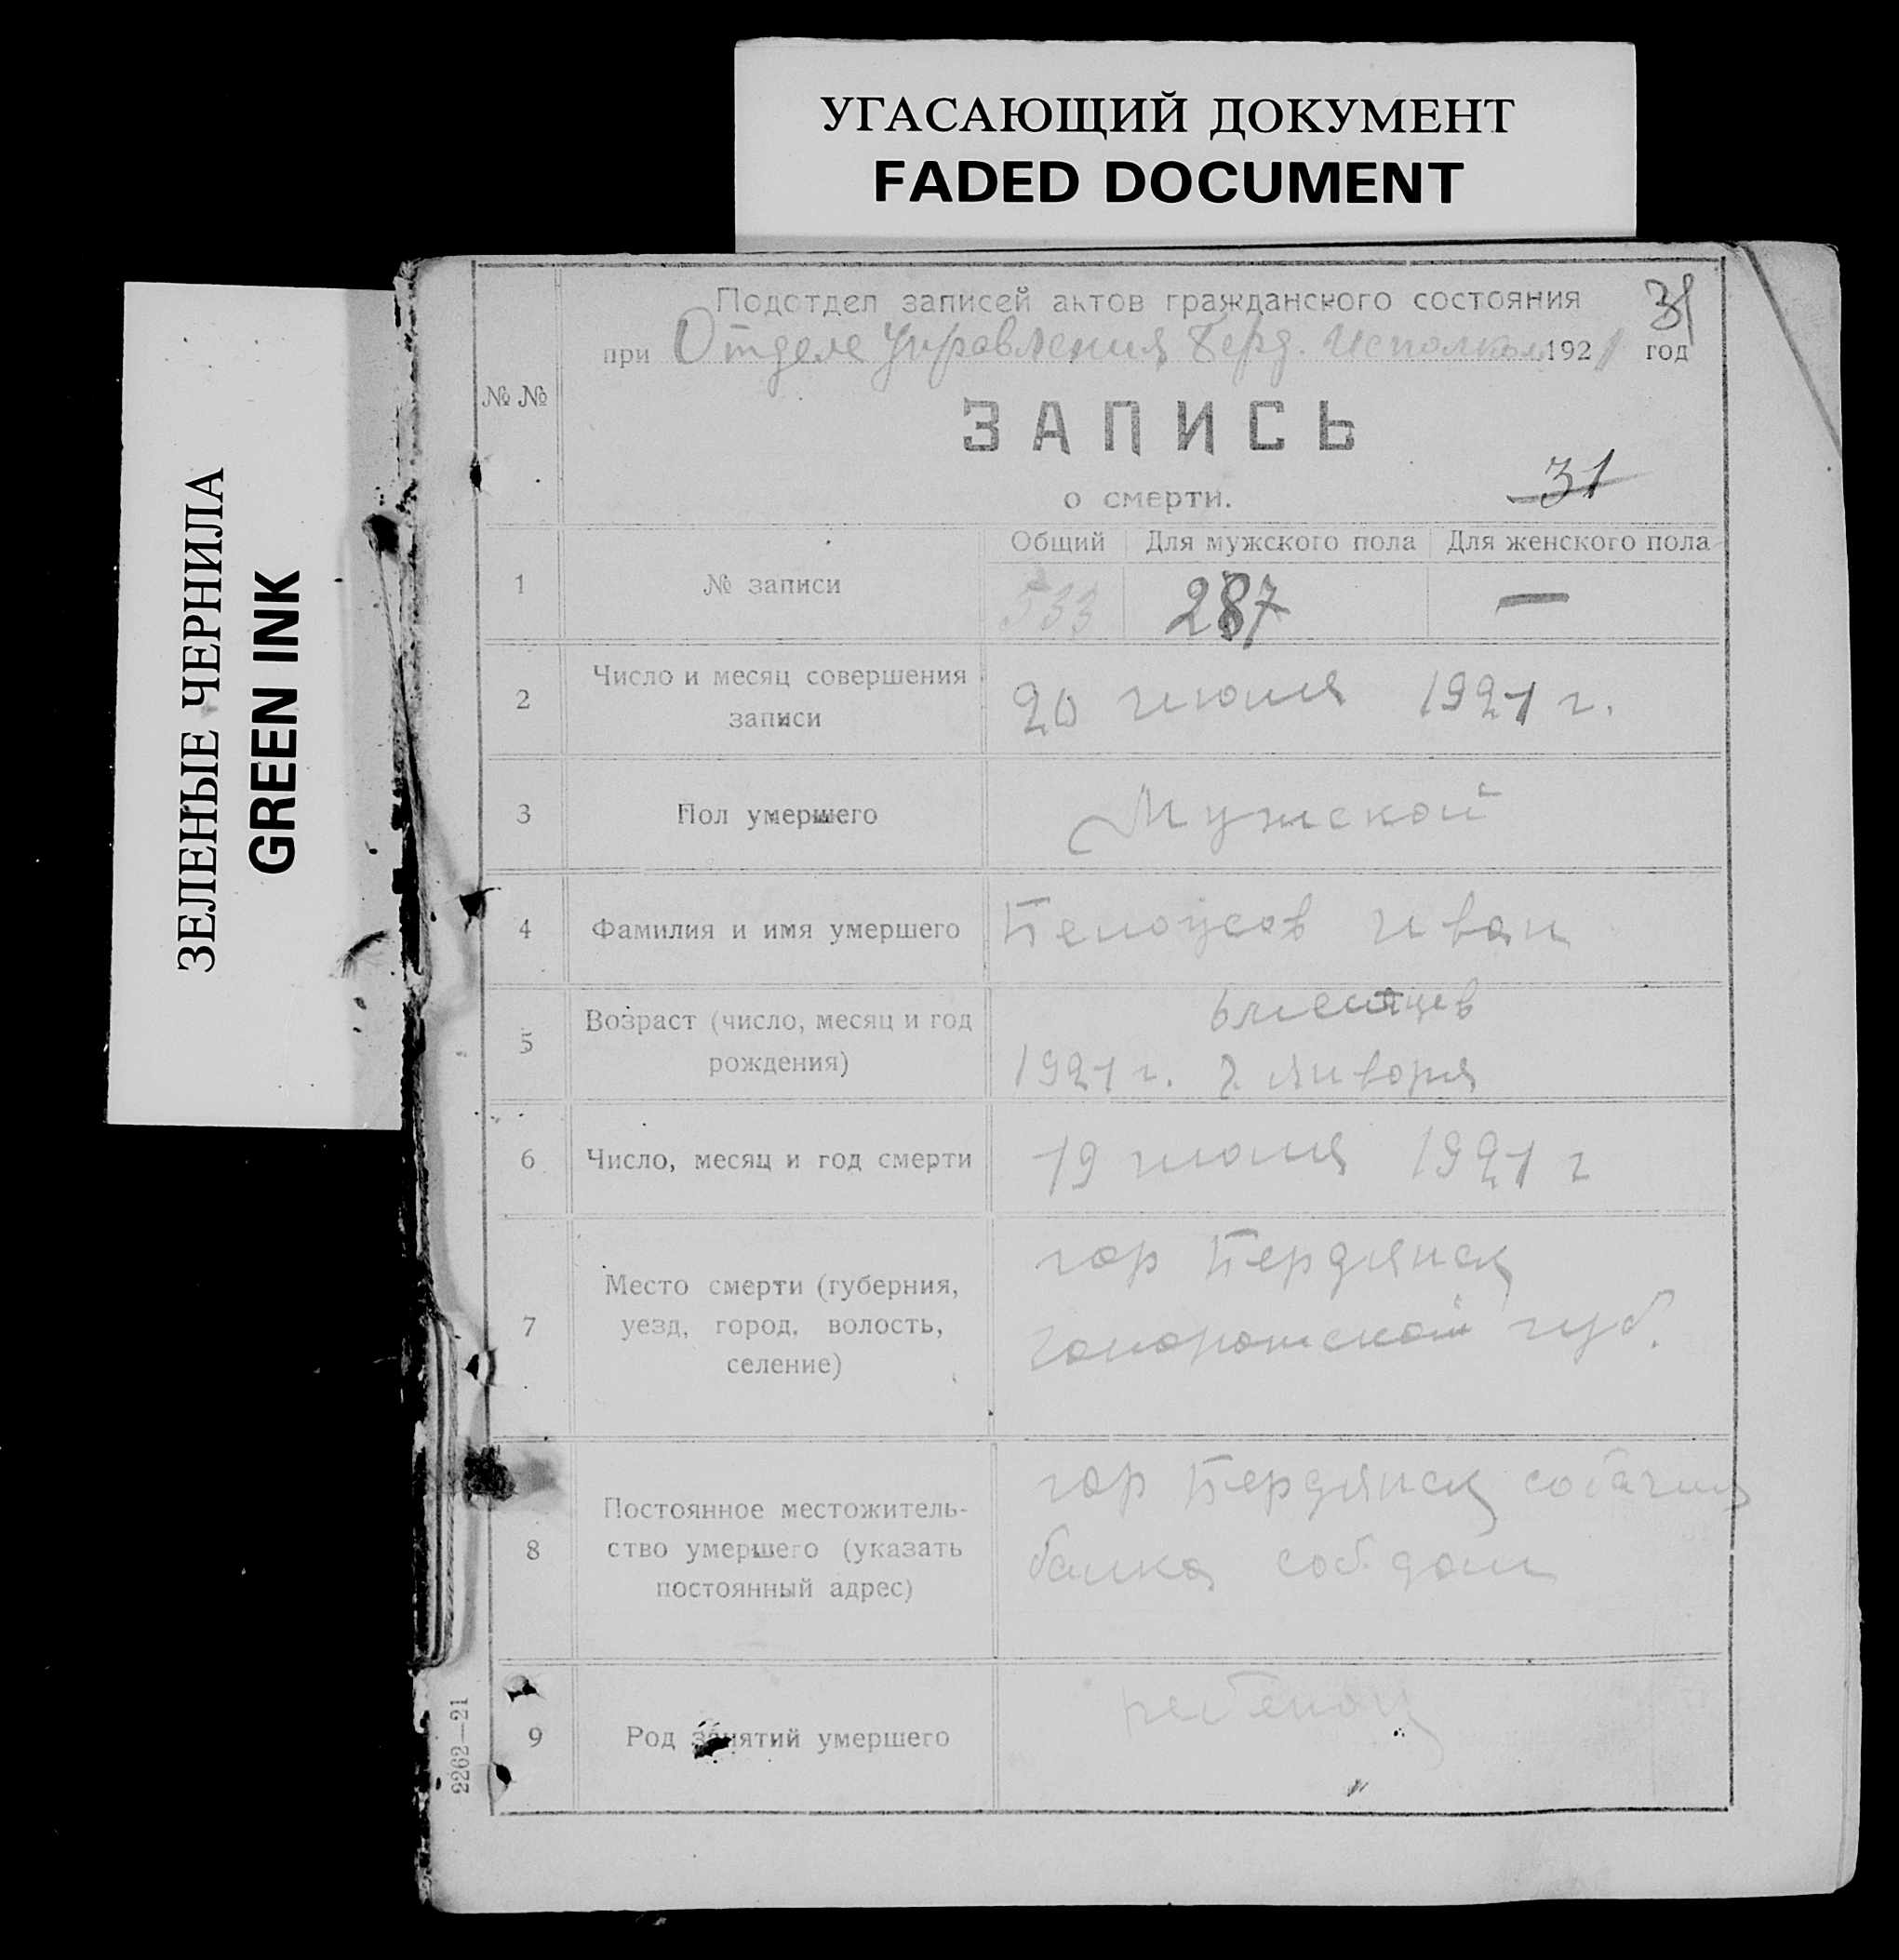 УГАСАЮЩИЙ ДОКУМЕНТ
FADED DOCUMENT
ЗЕЛЕНЫЕ ЧЕРНИЛА
GREEN INK
Подотдел записей актов гражданского состояния
31
при Отделе Управления Берд. Исполкома 1921 год
№ №
ЗАПИСЬ
о смерти.
31
Общий Для мужского пола Для женского пола
1 № записи 533 287 —
2 Число и месяц совершения записи
20 июля 1921 г.
3 Пол умершего Мужской
4 Фамилия и имя умершего Белоусов Иван
5 Возраст (число, месяц и год рождения)
6 месяцев
1921 г. 7 января
6 Число, месяц и год смерти 19 июля 1921 г
7 Место смерти (губерния,
уезд, город, волость,
селение)
гор Бердянск
губ.
8 Постоянное местожитель-
ство умершего (указать
постоянный адрес)
гор Бердянск собачия
балка соб. дом
9 Род занятий умершего ребенок
2262—21